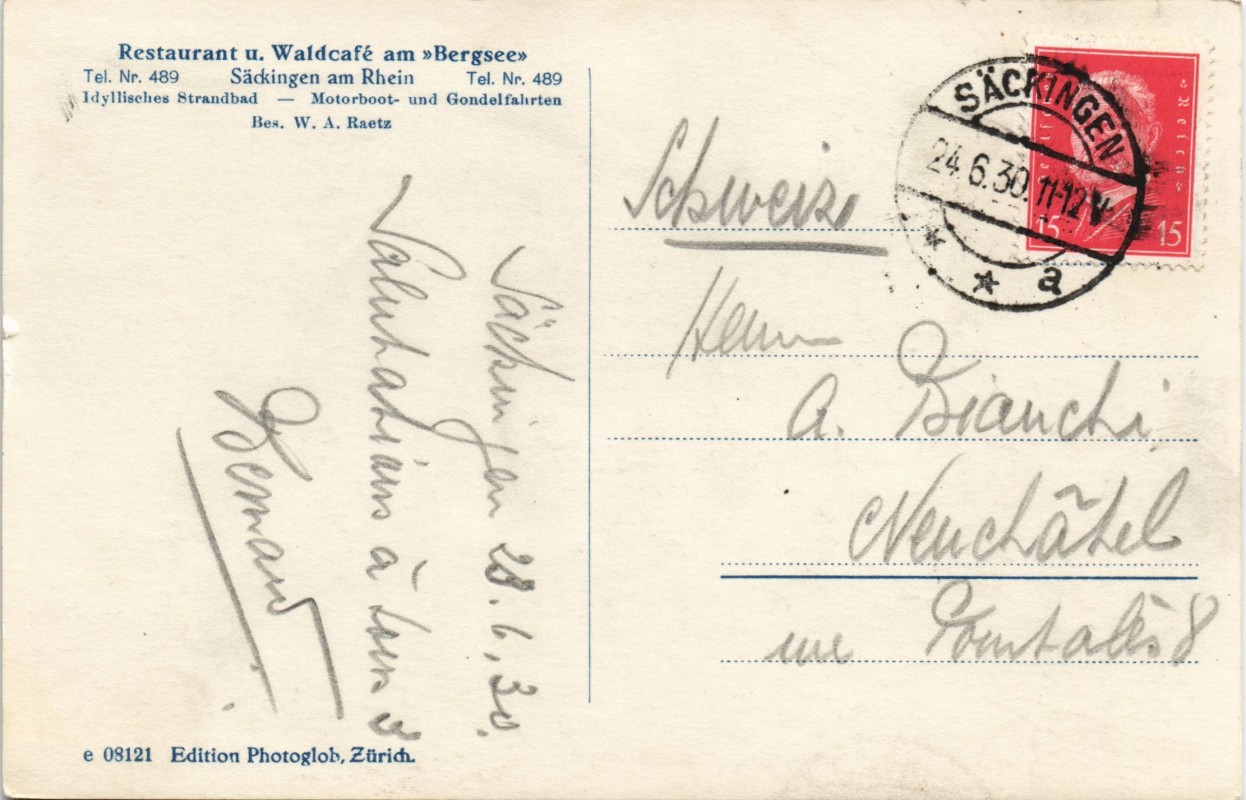 Restaurant u. Waldcafé am »Bergsee«
Tel. Nr. 489 Säckingen am Rhein Tel. Nr. 489
Idyllisches Strandbad — Motorboot- und Gondelfahrten
Bes. W. A. Raetz
Säckingen 28.6.30.
à tous
e 08121 Edition Photoglob, Zürich.
SÄCKINGEN
24.6.30. 11-12 V
* * a
Reich
15 15
Schweiz
Herrn
A. Bianchi
Neuchâtel
rue Pourtalès 8